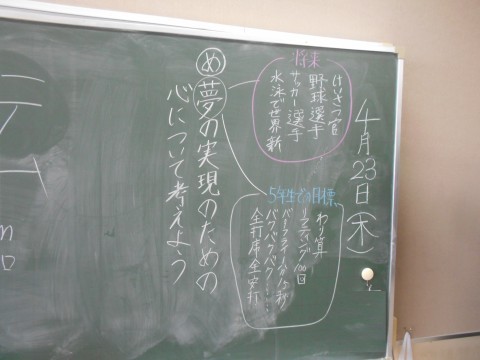 4月23日(木)
将来
けいさつ官
野球選手
サッカー選手
水泳で世界新
5年生での目標
わり算
リフティング100回
バタフライ
全打席全安打
め 夢の実現のための
心について考えよう